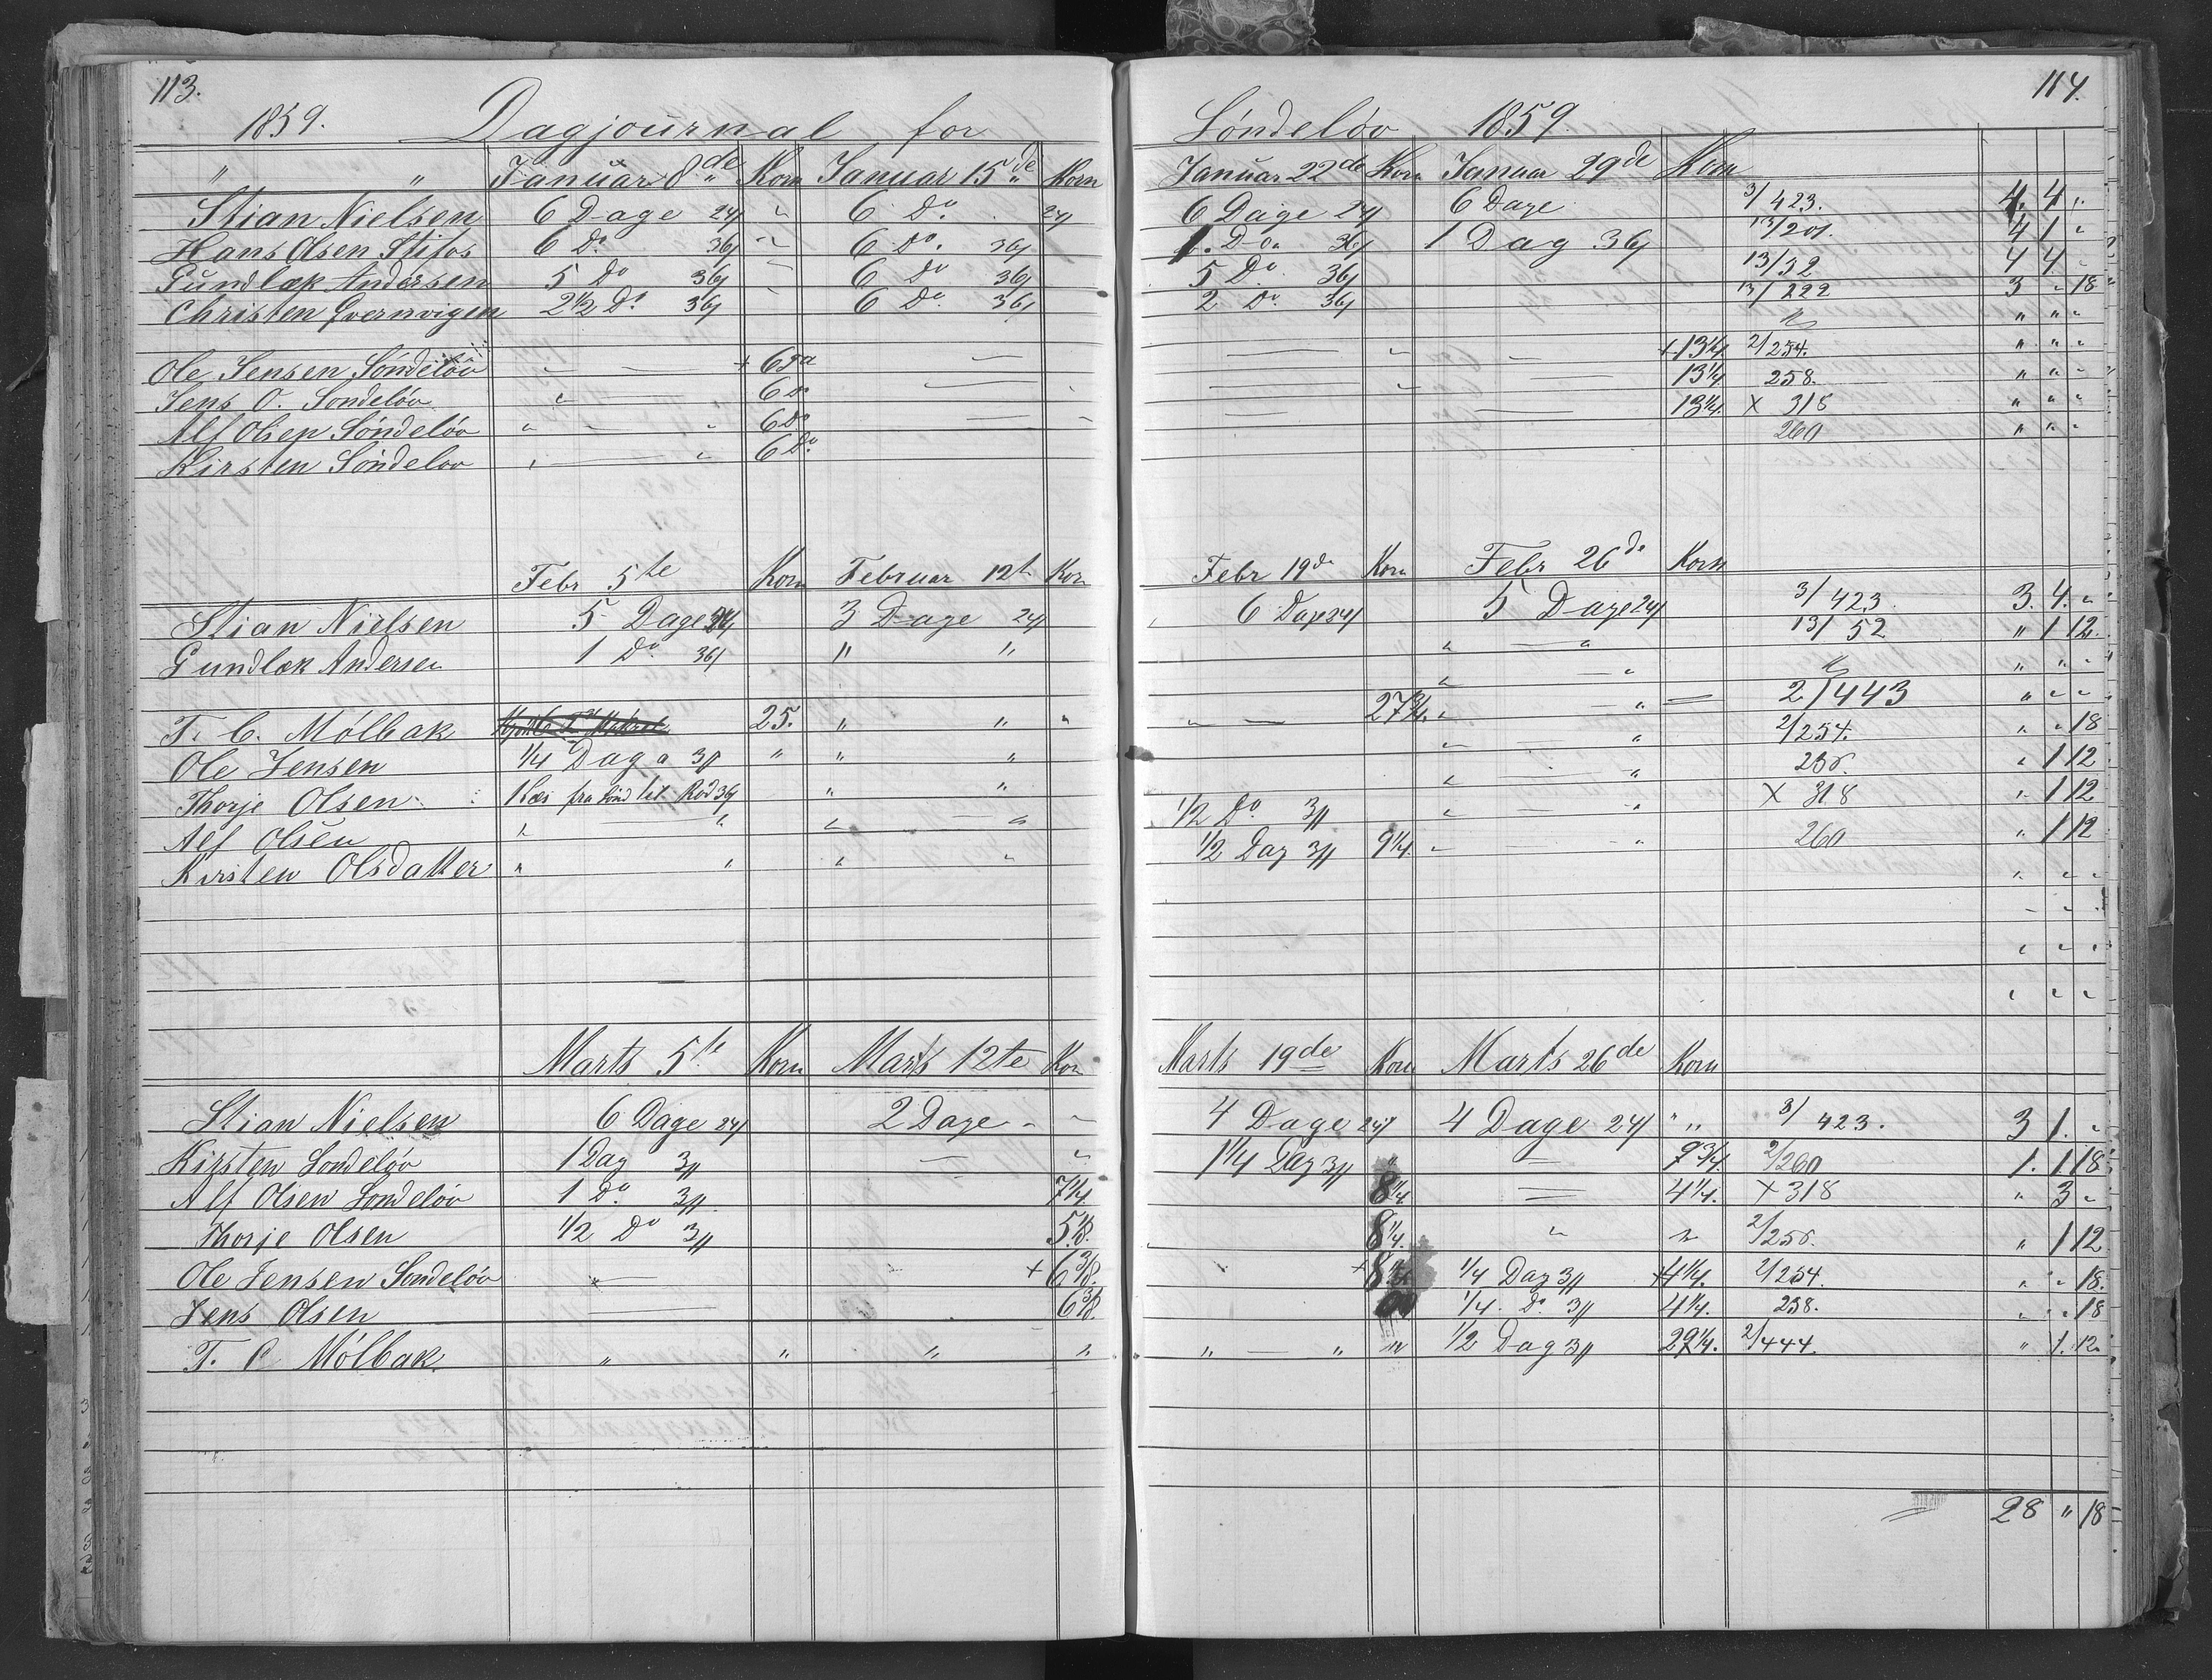 113.
114.
1859. Dagjournal for Söndelöv 1859.
" " Januar 8de Korn Januar 15de Korn Januar 22de Korn Januar 29de Korn
Stian Nielsen 6 Dage 24 " 6 Do. 24 6 Dage 24 6 Dage 3/423. 4. 4 "
Hans Olsen Stifos 6 Do 36 " 6 Do. 36 1. Do. 36 1 Dag 36 13/201. 4 1 "
Gundlæk Andersen 5 Do 36 " 6 Do 36 5 Do. 36 13/52 4 4 "
Christen Qvernvigen 2½ Do 36 6 Do 36 2 Do. 36 13/222 3 " 18
" " "
Ole Jensen Söndelöv + 6 + 13¼ 2/254. " " "
Jens O. Sondelöv " 6 Do 13¼ 258. " " "
Alf Olsen Söndelöv " " 6 Do 13¼. X 318 " " "
Kirsten Söndelov " " 6 Do. 260 " " "
Febr 5te Korn Februar 12te Kor Febr 19de Korn Febr 26de Korn
Stian Nielsen 5 Dage 24 3 Dage 24 6 Dage 24 5 Dage 24 3/423. 3. 4. "
Gundlæk Andersen 1 Do. 36 " " " " 13/52 " 1 12.
" " "
T. C. Mölbak 25. " " " 27¾. " " 2/443 " " "
Ole Jensen ¼ Dag a 3 " " " " " 2/254. " " 18
Thorje Olsen 1 Læs fra Sönd til Röd 36 " " " " 256. " 1 12
Alf Olsen " " " " ½ Do 3 " " X 318 " 1 12
Kirsten Olsdatter " " " " ½ Dag 3 9¼. " " 260 " 1 12
Marts 5te Korn Marts 12te Kor Marts 19de Korn Marts 26de Korn
Stian Nielsen 6 Dage 24 2 Dage " " 4 Dage 24 4 Dage 24 " 3/423. 3 1. "
Kirsten Sondelöv 1 Dag 3 " 1¼ Dag 3 " 9¾. 2/260 1. 1 18
Alf Olsen Sondelöv 1 Do. 3 7¼. 8¼. 4¼. X 318 " 3 "
Thorje Olsen ½ Do 3 8¼. " " 2/256. " 1 12
Ole Jensen Sondelöv " + 6⅜. + ¼ Dag 3 + 4¼. 2/254. " " 18.
Jens Olsen 6⅜. ¼. Do. 3 4¼. 258. " " 18
T. C Mölbak " " " " " " " ½ Dag 3 29¼. 2/444. " 1. 12.
28 " 18